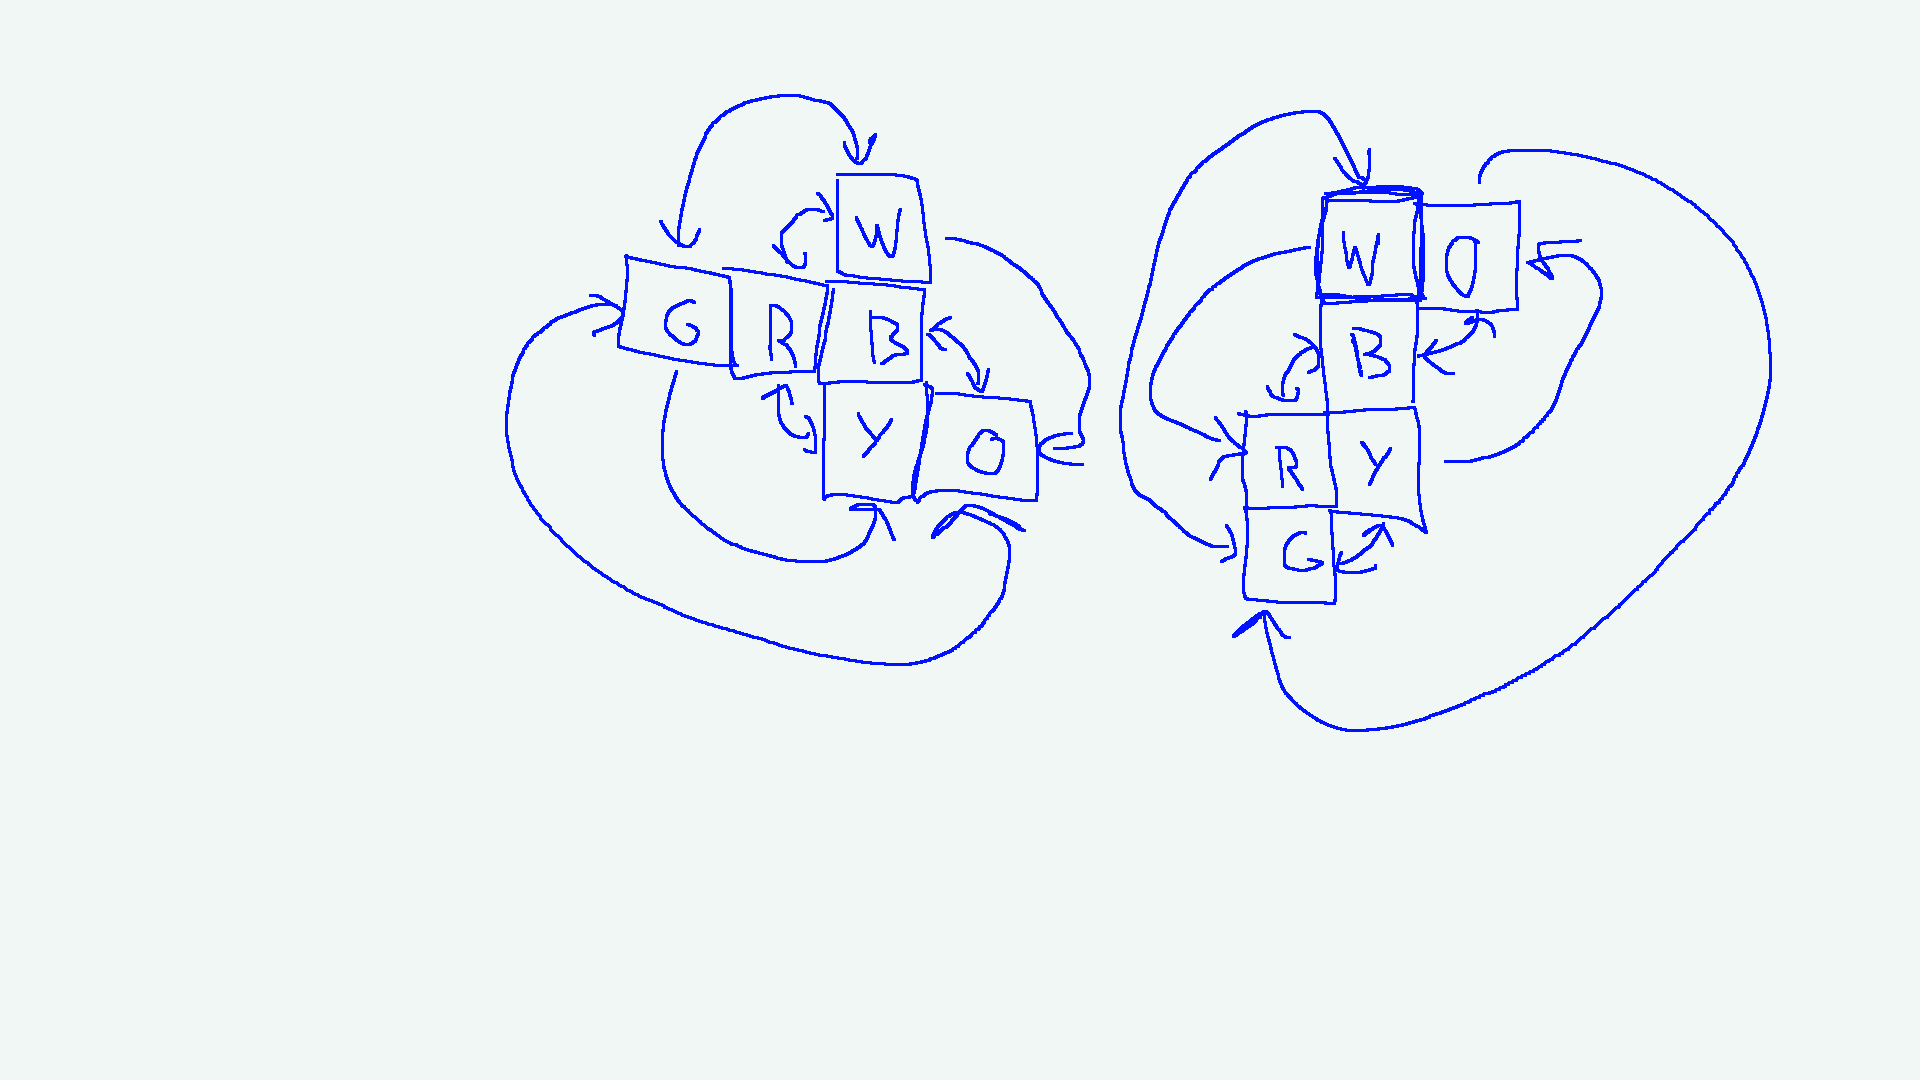 W
G R B
Y O
W O
B
R Y
G